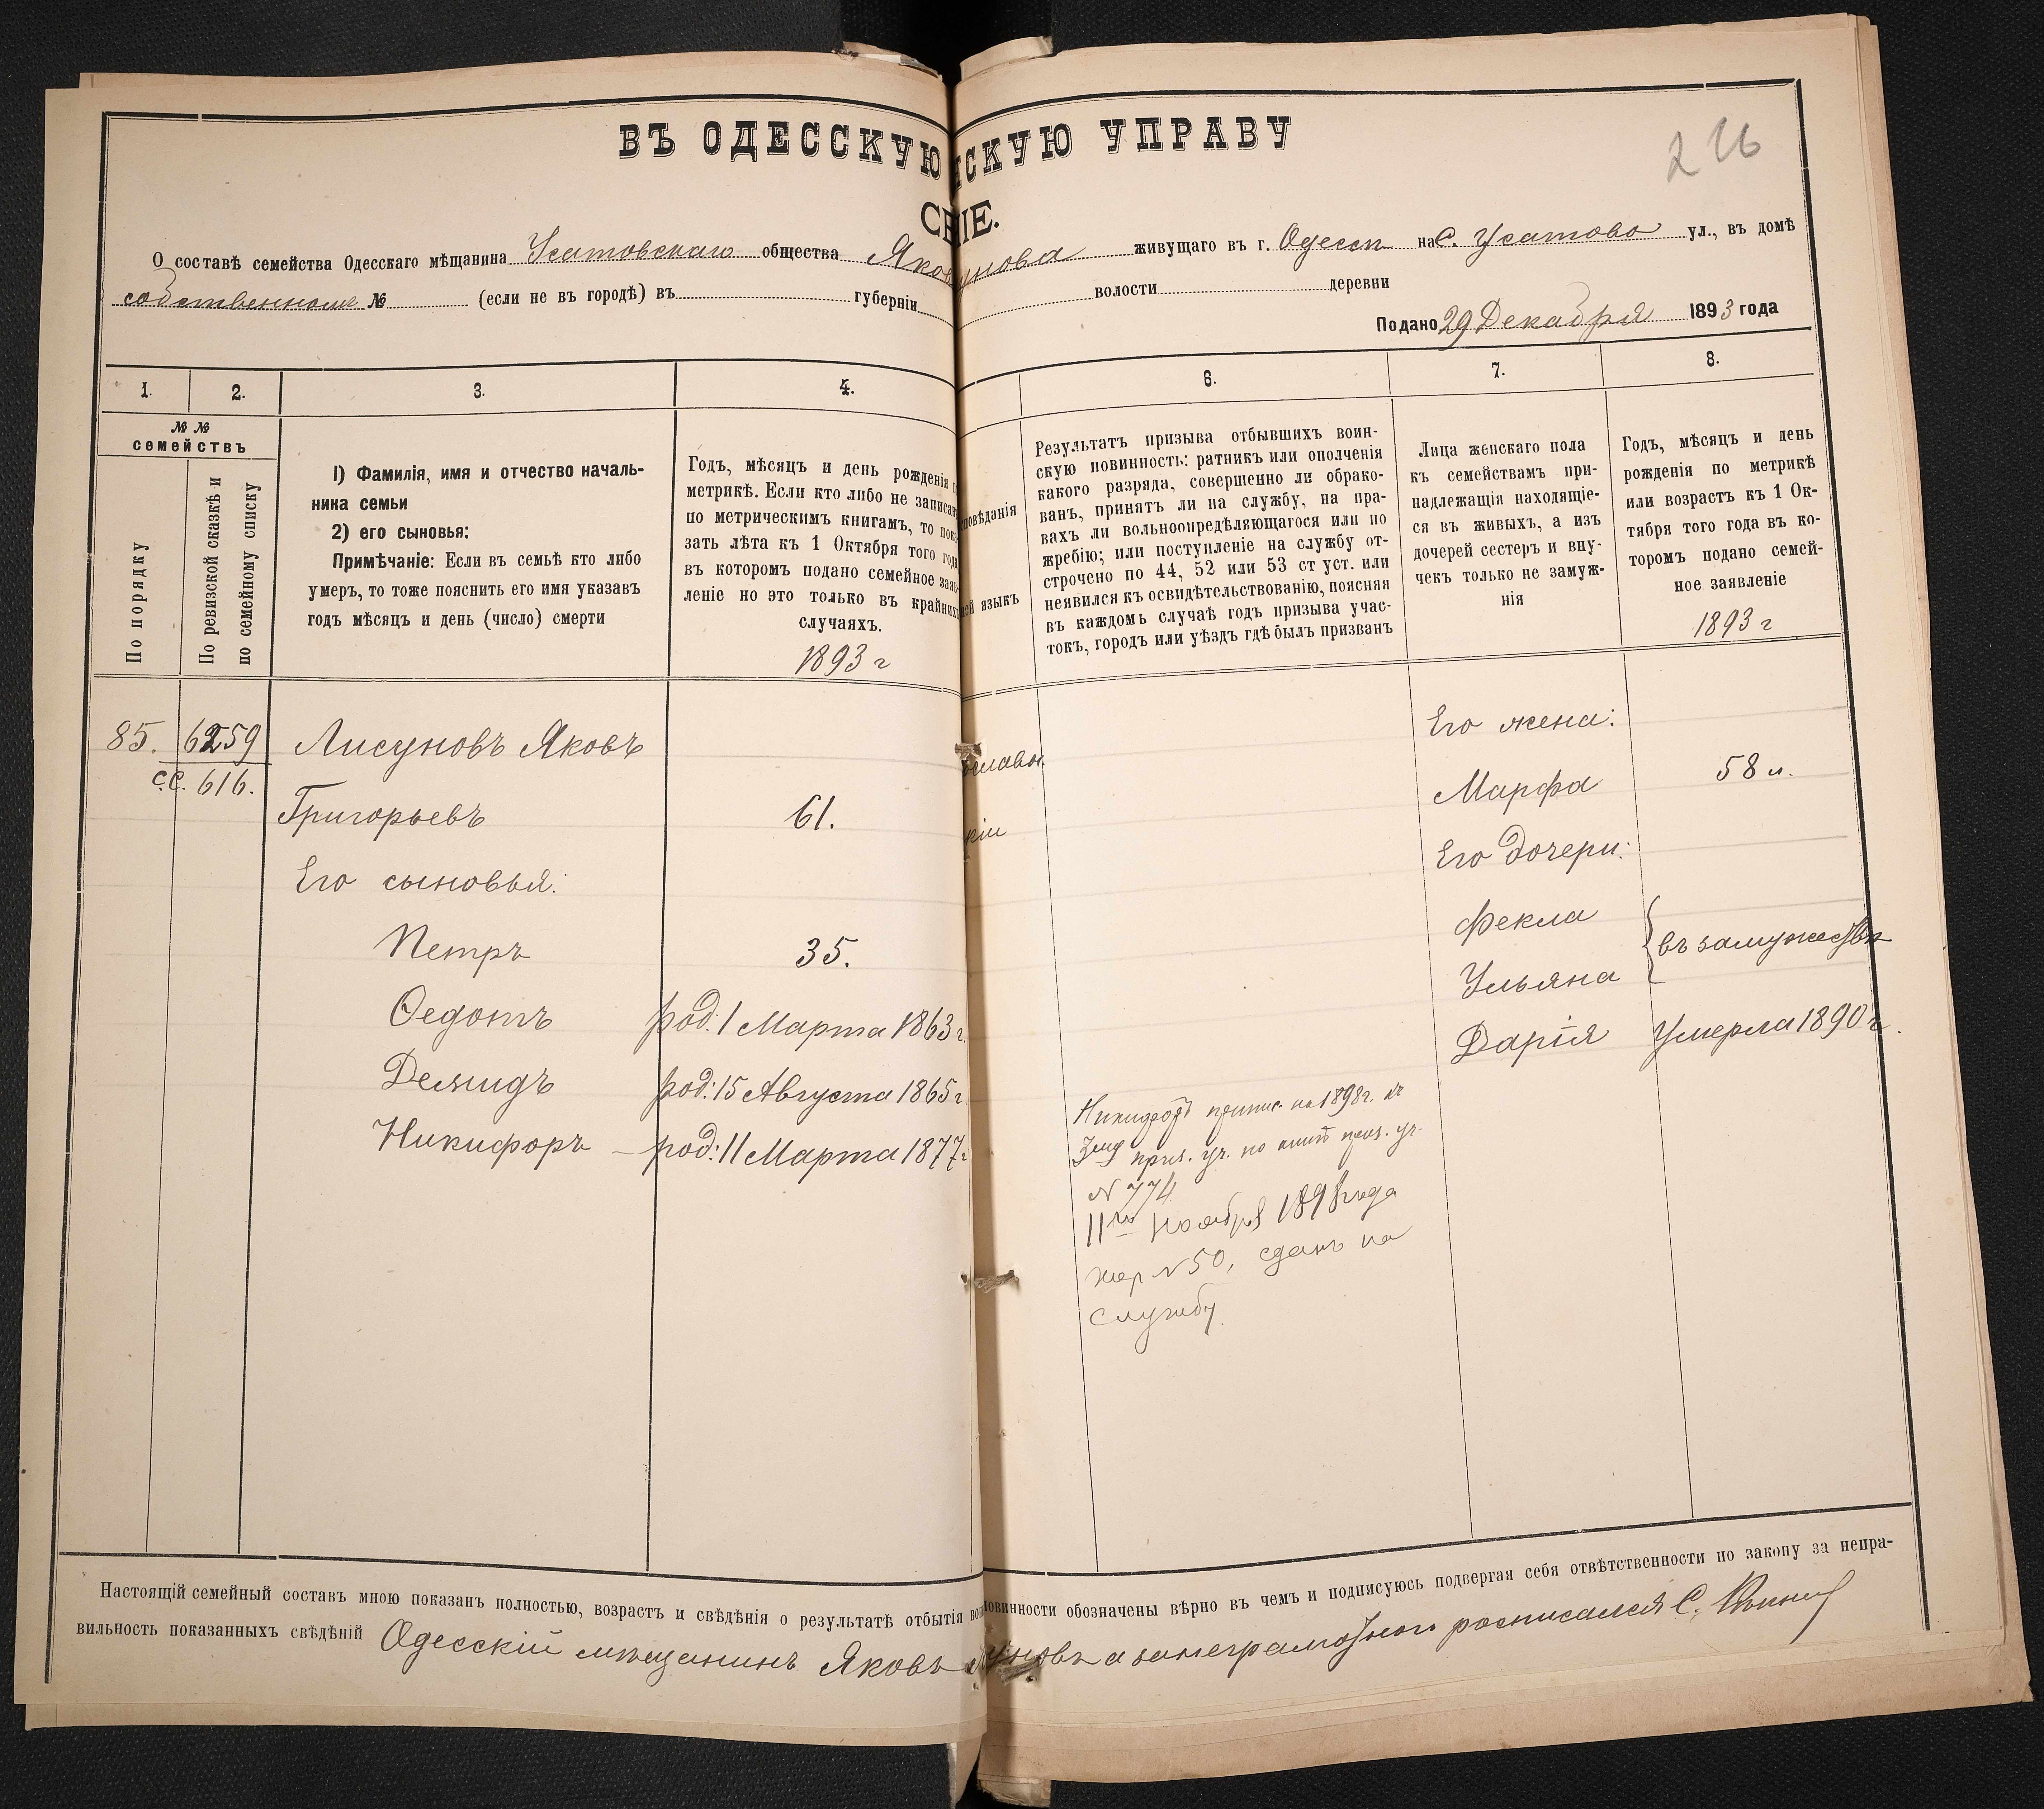 ВЪ ОДЕССКУЮ СКУЮ УПРАВУ
226
ІЕ.
О составѣ семейства Одесскаго мѣщанина Усатовскаго общества Яков унова живущаго въ г. Одессѣ на С. Усатово ул., въ домѣ
собственномъ № (если не въ городѣ) въ губерніи волости деревни
Подано 29 Декабря 1893 года
1. 2. 3. 4. 6. 7. 8.
№ №
семействъ
По порядку
По ревизской сказкѣ и
по семейному списку
1) Фамилія, имя и отчество началь-
ника семьи
2) его сыновья:
Примѣчаніе: Если въ семьѣ кто либо
умеръ, то тоже пояснить его имя указавъ
годъ мѣсяцъ и день (число) смерти
Годъ, мѣсяцъ и день рожденія
метрикѣ. Если кто либо не записан
по метрическимъ книгамъ, то пока
зать лѣта къ 1 Октября того года
въ которомъ подано семейное заяв-
леніе но это только въ крайних
случаяхъ.
1893 г
повѣданія
языкъ
Результатъ призыва отбывшихъ воин-
скую повинность: ратникъ или ополченія
какого разряда, совершенно ли обрако-
ванъ, принятъ ли на службу, на пра-
вахъ ли вольноопредѣляющагося или по
жребію; или поступленіе на службу от-
строчено по 44, 52 или 53 ст уст. или
неявился къ освидѣтельствованію, поясняя
въ каждомъ случаѣ годъ призыва учас-
токъ, городъ или уѣздъ гдѣ былъ призванъ
Лица женскаго пола
къ семействамъ при-
надлежащія находящіе-
ся въ живыхъ, а изъ
дочерей сестеръ и вну-
чекъ только не замуж-
нія
Годъ, мѣсяцъ и день
рожденія по метрикѣ
или возрастъ къ 1 Ок-
тября того года въ ко-
торомъ подано семей-
ное заявленіе
1893 г
85. 6259 Лисуновъ Яковъ
с.с. 616.
Григорьевъ 61.
Его сыновья:
Петръ 35.
Ѳедотъ род: 1 Марта 1863 г
Демидъ род: 15 Августа 1865 г
Никифоръ – род: 11 Марта 1877 г
ославн
кій
Никифоръ припис. на 1898 г. къ
приз. уч. по приз. уч.
N 774
11го Ноября 1898 года
жер N 50, сданъ на
службу
Его жена:
Марфа 58 л.
Его дочери:
Фекла
въ замужествѣ
Ульяна
Дарія Умерла 1890 г.
Настоящій семейный составъ мною показанъ полностью, возрастъ и свѣдѣнія о результатѣ отбытія во повинности обозначены вѣрно въ чемъ и подписуюсь подвергая себя отвѣтственности по закону за непра-
вильность показанныхъ свѣдѣній Одесскій мѣщанинъ Яковъ уновъ а за неграмотнаго росписался С.